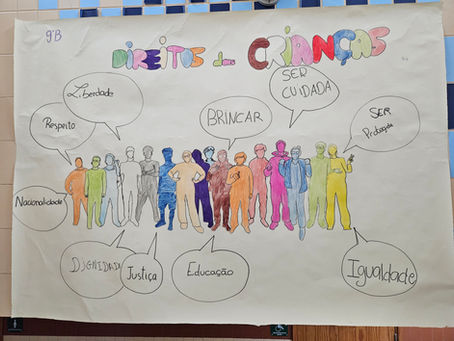 9ºB
DIREITOS das CRIANÇAS
Liberdade
SER
CUIDADA
Respeito
BRINCAR
SER
Protegida
Nacionalidade
DIGNIDADE
Justiça
Educação
Igualdade